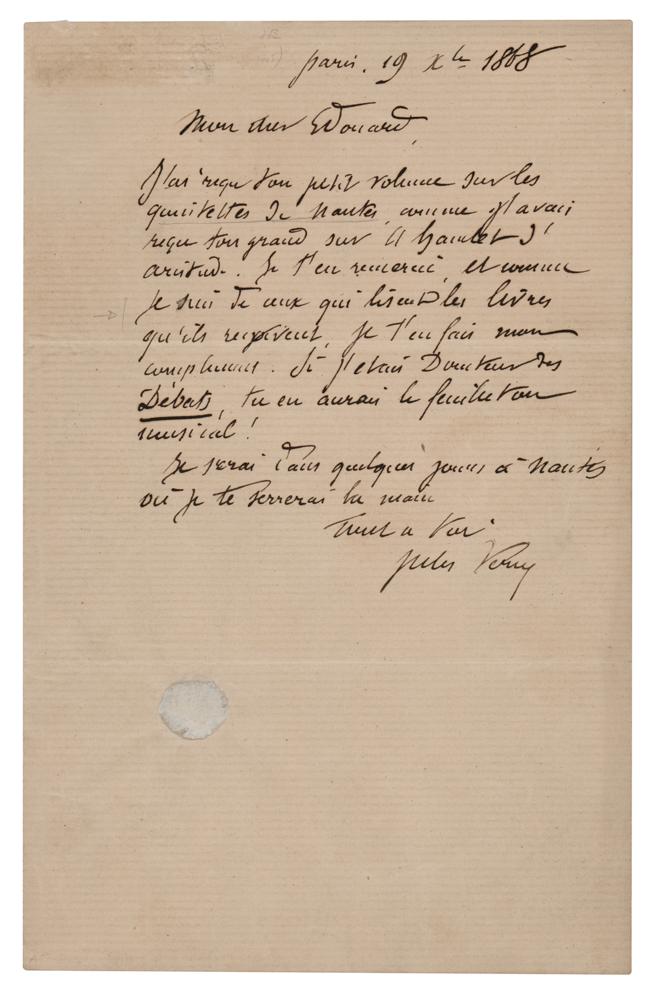 Paris. 19 Xbre 1868
Mon cher Edouard,
J'ai reçu ton petit volume sur les
de Nantes, comme j'avais
reçu ton grand sur Hamlet d'
. Je t'en remercie, et comme
je suis de ceux qui lisent les livres
qu'ils reçoivent, je t'en fais mon
compliment. Si j'étais Directeur des
Débats, tu en aurais le feuilleton
musical !
Je serai dans quelques jours à Nantes
où je te serrerai la main
Tout à toi.
Jules Verne